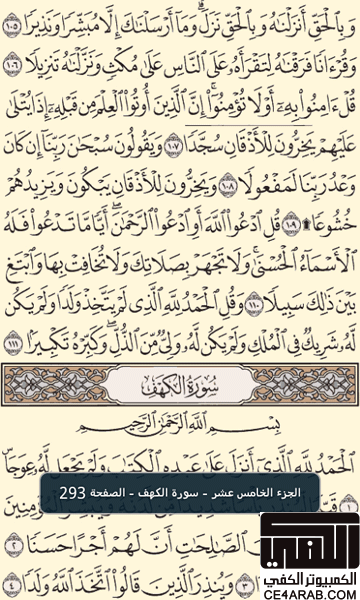 وَبِٱلۡحَقِّ أَنزَلۡنَٰهُ وَبِٱلۡحَقِّ نَزَلَۗ وَمَآ أَرۡسَلۡنَٰكَ إِلَّا مُبَشِّرٗا وَنَذِيرٗا ١٠٥
وَقُرۡءَانٗا فَرَقۡنَٰهُ لِتَقۡرَأَهُۥ عَلَى ٱلنَّاسِ عَلَىٰ مُكۡثٖ وَنَزَّلۡنَٰهُ تَنزِيلٗا ١٠٦
قُلۡ ءَامِنُواْ بِهِۦٓ أَوۡ لَا تُؤۡمِنُوٓاْۚ إِنَّ ٱلَّذِينَ أُوتُواْ ٱلۡعِلۡمَ مِن قَبۡلِهِۦٓ إِذَا يُتۡلَىٰ
عَلَيۡهِمۡ يَخِرُّونَۤ لِلۡأَذۡقَانِۤ سُجَّدٗاۤ ١٠٧ وَيَقُولُونَ سُبۡحَٰنَ رَبِّنَآ إِن كَانَ
وَعۡدُ رَبِّنَا لَمَفۡعُولٗا ١٠٨ وَيَخِرُّونَ لِلۡأَذۡقَانِ يَبۡكُونَ وَيَزِيدُهُمۡ
خُشُوعٗا ۩ ١٠٩ قُلِ ٱدۡعُواْ ٱللَّهَ أَوِ ٱدۡعُواْ ٱلرَّحۡمَٰنَۖ أَيّٗا مَّا تَدۡعُواْ فَلَهُ
ٱلۡأَسۡمَآءُ ٱلۡحُسۡنَىٰۚ وَلَا تَجۡهَرۡ بِصَلَاتِكَ وَلَا تُخَافِتۡ بِهَا وَٱبۡتَغِ
بَيۡنَ ذَٰلِكَ سَبِيلٗا ١١٠ وَقُلِ ٱلۡحَمۡدُ لِلَّهِ ٱلَّذِي لَمۡ يَتَّخِذۡ وَلَدٗا وَلَمۡ يَكُن
لَّهُۥ شَرِيكٞ فِي ٱلۡمُلۡكِ وَلَمۡ يَكُن لَّهُۥ وَلِيّٞ مِّنَ ٱلذُّلِّۖ وَكَبِّرۡهُ تَكۡبِيرَۢا ١١١
سُورَةُ الكَهۡفِ
بِسۡمِ ٱللَّهِ ٱلرَّحۡمَٰنِ ٱلرَّحِيمِ
ٱلۡحَمۡدُ لِلَّهِ ٱلَّذِيٓ أَنزَلَ عَلَىٰ عَبۡدِهِ ٱلۡكِتَٰبَ وَلَمۡ يَجۡعَل لَّهُۥ عِوَجَاۜ
١
الجزء الخامس عشر - سورة الكهف - الصفحة 293
ٱلصَّٰلِحَٰتِ أَنَّ لَهُمۡ أَجۡرًا حَسَنٗا ٢
٣ وَيُنذِرَ ٱلَّذِينَ قَالُواْ ٱتَّخَذَ ٱللَّهُ وَلَدٗا ٤
الكفي
الكمبيوتر الكفي
CE4ARAB.COM